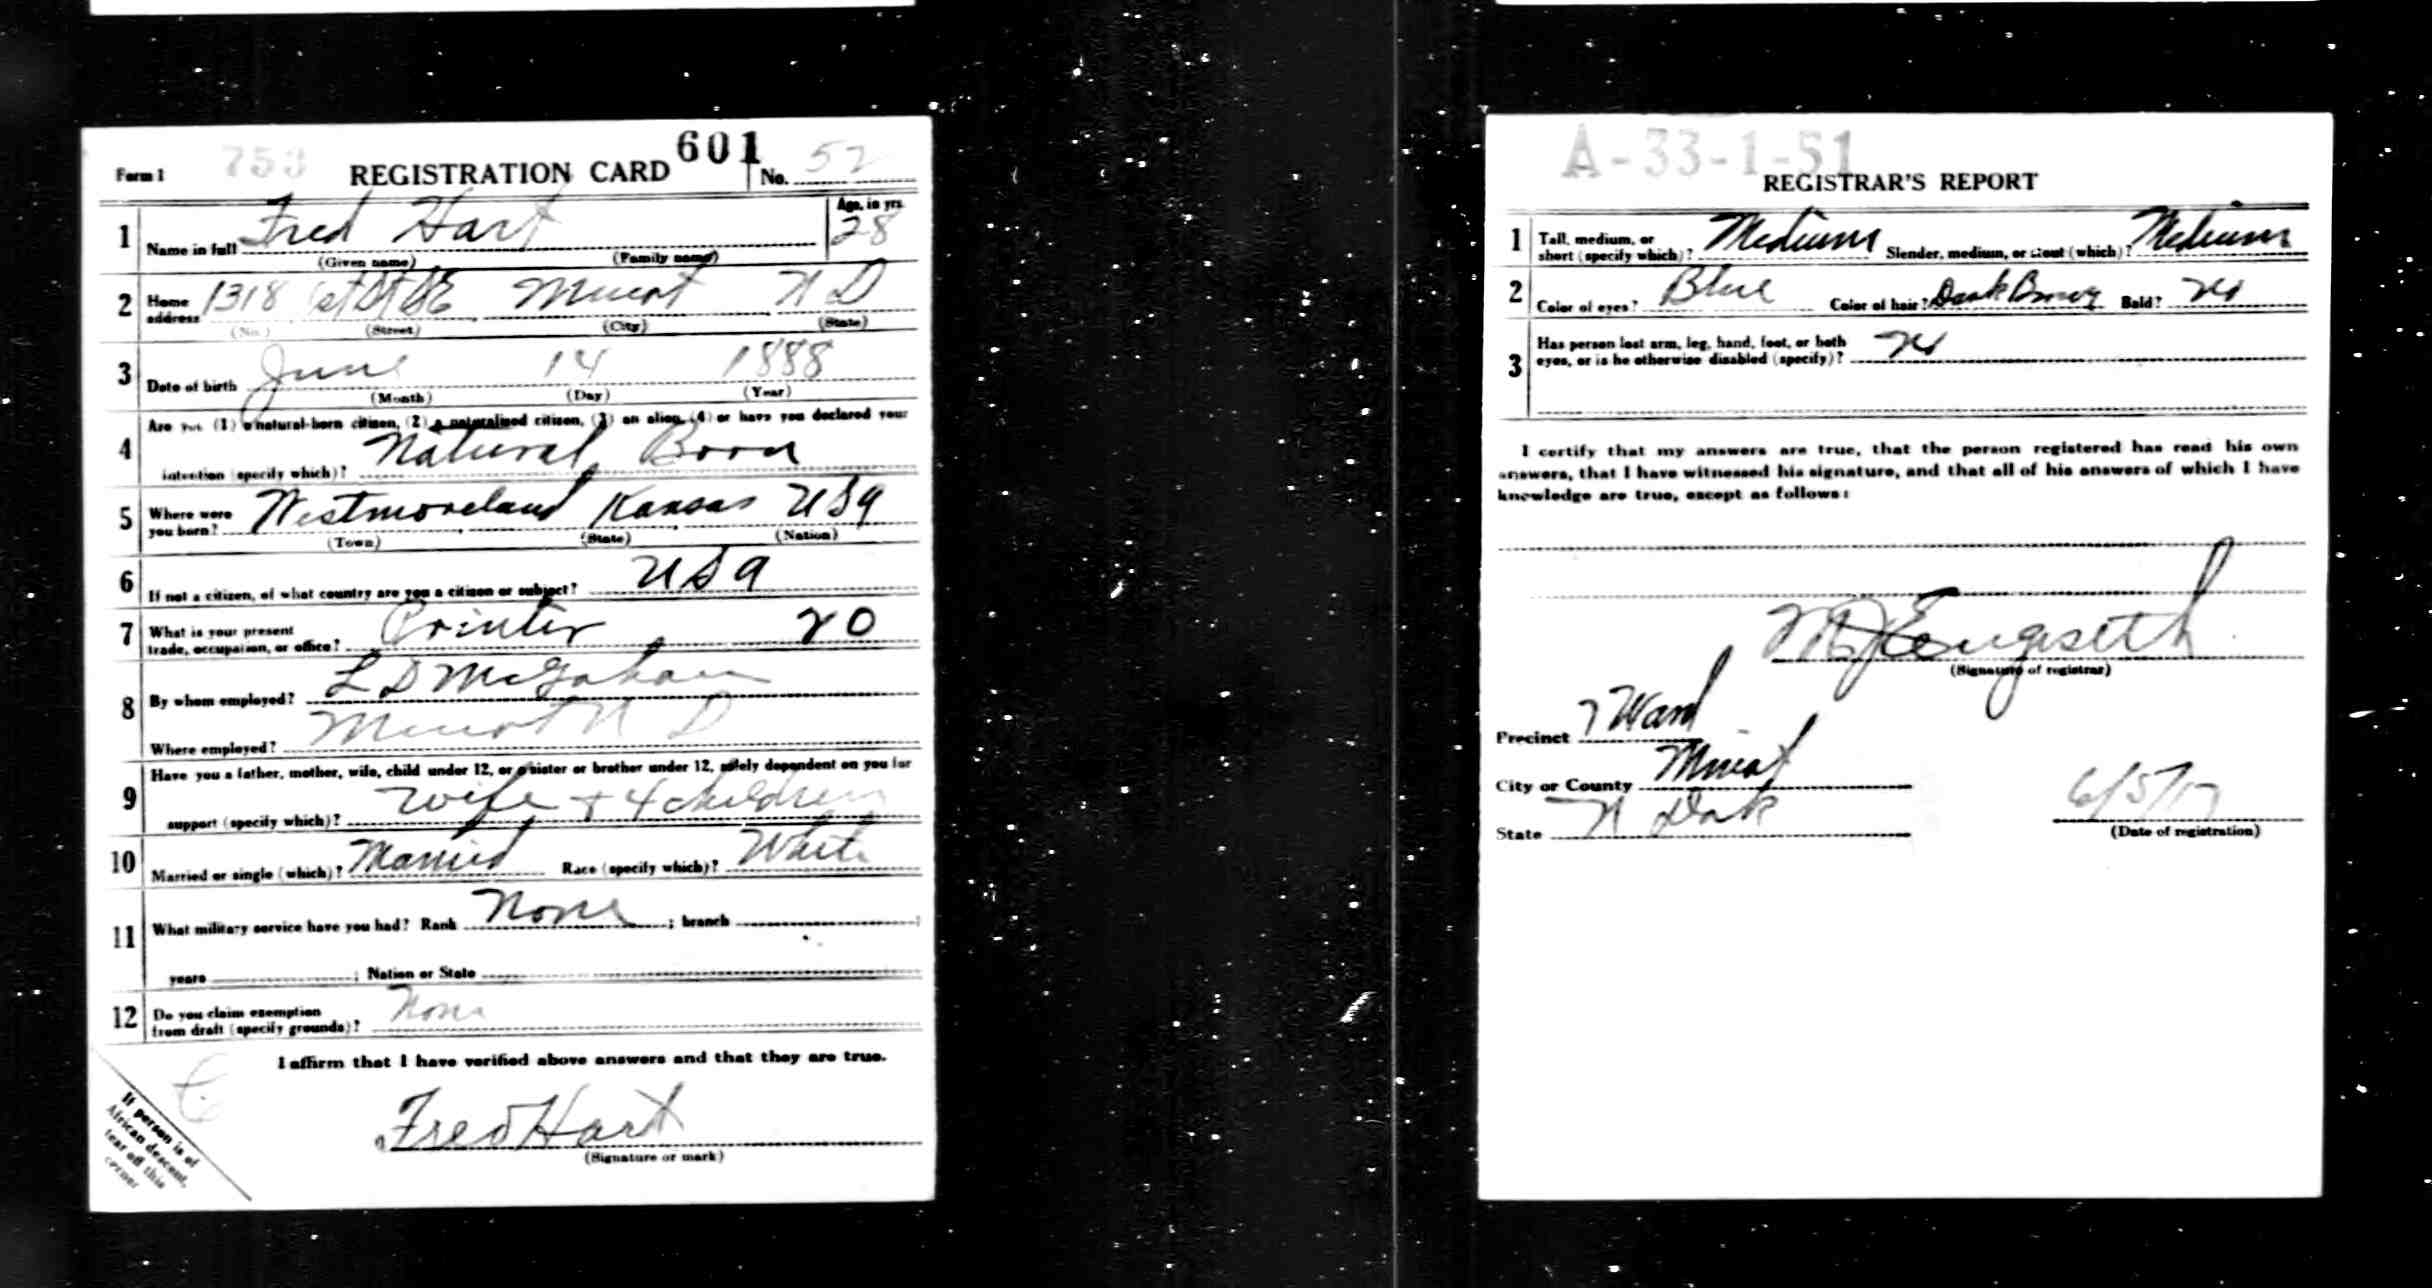 Form 1 753 REGISTRATION CARD 601 No. 52
1 Name in full Fred Hart Age, in yrs. 28
(Given name) (Family name)
2 Home address 1318 1st St SE Minot N D
(No.) (Street) (City) (State)
3 Date of birth June 14 1888
(Month) (Day) (Year)
4 Are you (1) a natural-born citizen, (2) a naturalized citizen, (3) an alien, (4) or have you declared your
intention (specify which)? Natural Born
5 Where were you born? Westmoreland Kansas USA
(Town) (State) (Nation)
6 If not a citizen, of what country are you a citizen or subject? USA
7 What is your present
trade, occupation, or office? Printer 20
8 By whom employed? L D McGahan
Where employed? Minot N D
9 Have you a father, mother, wife, child under 12, or a sister or brother under 12, solely dependent on you for
support (specify which)? Wife + 4 children
10 Married or single (which)? Married Race (specify which)? White
11 What military service have you had? Rank None ; branch ;
years ; Nation or State
12 Do you claim exemption
from draft (specify grounds)? None
I affirm that I have verified above answers and that they are true.
Fred Hart
(Signature or mark)
If person is of
African descent,
tear off this
corner
A-33-1-51
REGISTRAR'S REPORT
1 Tall, medium, or
short (specify which)? Medium Slender, medium, or stout (which)? Medium
2 Color of eyes? Blue Color of hair? Dark Brown Bald? No
3 Has person lost arm, leg, hand, foot, or both
eyes, or is he otherwise disabled (specify)? No
I certify that my answers are true, that the person registered has read his own
answers, that I have witnessed his signature, and that all of his answers of which I have
knowledge are true, except as follows:
Engeseth
(Signature of registrar)
Precinct 7 Ward
City or County Minot
State N Dak 6/5/17
(Date of registration)